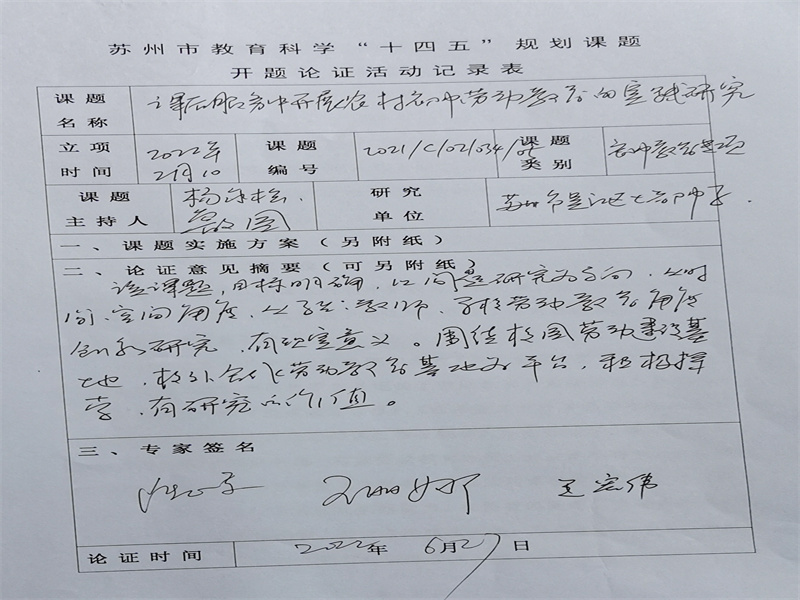 苏州市教育科学“十四五”规划课题
开题论证活动记录表
课题名称 课后服务中开展农村初中劳动教育的实践研究
立项时间 2022年2月10 课题编号 2021/C/02/034/05 课题类别
课题主持人 研究单位 苏州市吴江区七都中学
一、课题实施方案（另附纸）
二、论证意见摘要（可另附纸）
该课题，目标明确，以问题研究为方向，从时
间、空间角度，从学生、教师、学校劳动教育角度
研究，有现实意义。围绕校园劳动建设基
地，校外劳动教育基地为平台，积极探
索，有研究的价值。
三、专家签名
王宏伟
论证时间 2022年 6月27日